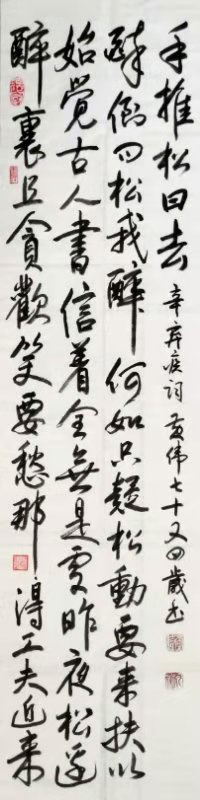 醉裏且貪歡笑要愁那得工夫近来
始覺古人書信着全無是處昨夜松邊
醉倒问松我醉何如只疑松動要来扶以
手推松曰去 辛弃疾词 伟七十又四歲书